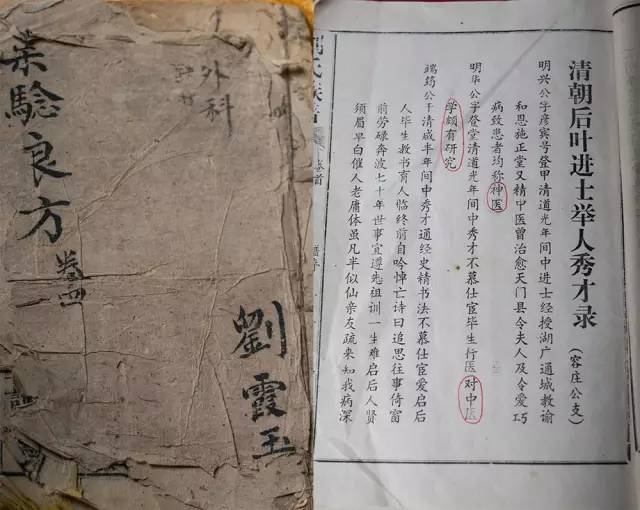 外科
驗良方
卷四
劉霞玉
清朝后叶进士举人秀才录(容庄公支)
明兴公字彦宾号登甲清道光年间中进士经授湖广通城教谕
和恩施正堂又精中医曾治愈天门县令夫人及令爱巧
病致患者均称神医
明华公字登堂清道光年间中秀才不慕仕宦毕生行医对中医
学颇有研究
筠公于清咸丰年间中秀才通经史精书法不慕仕宦爱启后
人毕生教书育人临终前自吟悼亡诗曰追思往事倚窗
前劳碌奔波七十年世事宜遵先祖训一生难启后人贤
须眉早白催人老庸体虽凡半似仙亲友疏来知我病深
氏族谱 卷首